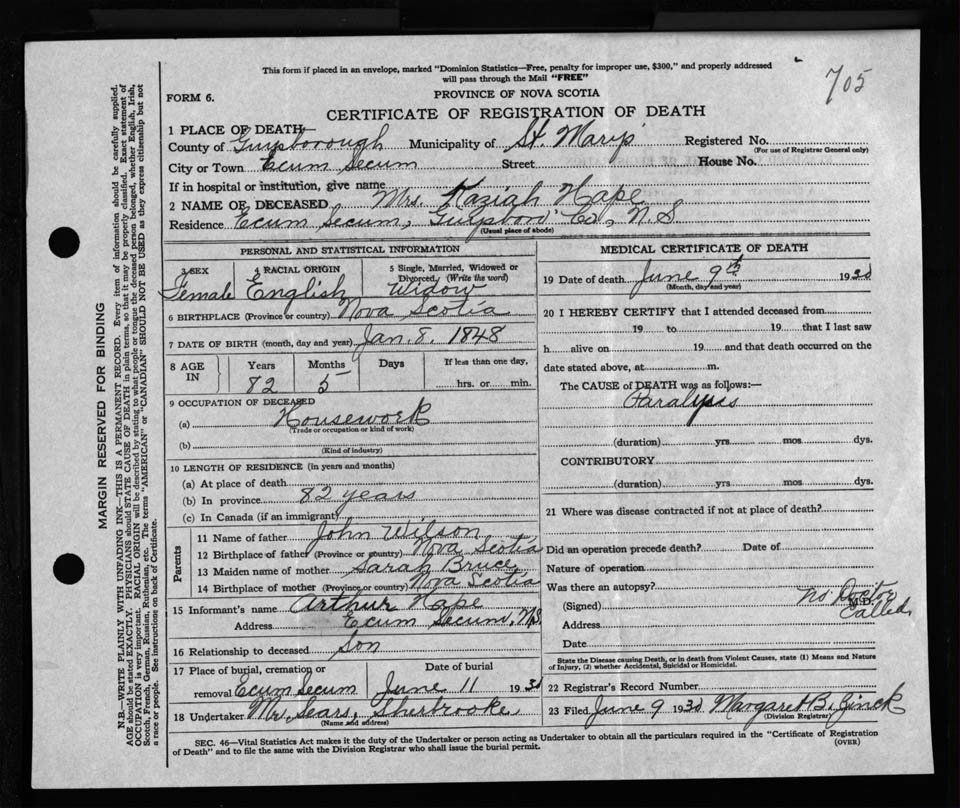 This form if placed in an envelope, marked "Dominion Statistics—Free, penalty for improper use, $300," and properly addressed
will pass through the Mail "FREE"
705
FORM 6.
PROVINCE OF NOVA SCOTIA
CERTIFICATE OF REGISTRATION OF DEATH
1 PLACE OF DEATH—
County of Guysborough Municipality of St. Marys Registered No.
(For use of Registrar General only)
City or Town Ecum Secum Street House No.
If in hospital or institution, give name
2 NAME OF DECEASED Mrs. Kaziah Hape
Residence Ecum Secum, Guysboro' Co, N.S
(Usual place of abode)
PERSONAL AND STATISTICAL INFORMATION
3 SEX 4 RACIAL ORIGIN 5 Single, Married, Widowed or
Divorced (Write the word)
Female English Widow
6 BIRTHPLACE (Province or country) Nova Scotia
7 DATE OF BIRTH (month, day and year) Jan. 8. 1848
8 AGE IN Years Months Days If less than one day,
82 5 hrs. or min.
9 OCCUPATION OF DECEASED
(a) Housework
(Trade or occupation or kind of work)
(b)
(Kind of industry)
10 LENGTH OF RESIDENCE (in years and months)
(a) At place of death
(b) In province 82 years
(c) In Canada (if an immigrant)
Parents
11 Name of father John Wilson
12 Birthplace of father (Province or country) Nova Scotia
13 Maiden name of mother Sarah Bruce
14 Birthplace of mother (Province or country) Nova Scotia
15 Informant's name Arthur Hape
Address Ecum Secum, N.S.
16 Relationship to deceased Son
17 Place of burial, cremation or Date of burial
removal Ecum Secum June 11 1930
18 Undertaker Mr. Sears, Sherbrooke
(Name and address)
MEDICAL CERTIFICATE OF DEATH
19 Date of death June 9th 1930
(Month, day and year)
20 I HEREBY CERTIFY that I attended deceased from
19 to 19 that I last saw
h alive on 19 and that death occurred on the
date stated above, at m.
The CAUSE of DEATH was as follows:—
Paralysis
(duration) yrs mos dys.
CONTRIBUTORY
(duration) yrs mos dys.
21 Where was disease contracted if not at place of death?
Did an operation precede death? Date of
Nature of operation
Was there an autopsy?
(Signed) M.D.
No Doctor
Called
Address
Date
State the Disease causing Death, or in death from Violent Causes, state (1) Means and Nature
of Injury, (2) whether Accidental, Suicidal or Homicidal.
22 Registrar's Record Number
23 Filed June 9 1930 Margaret B. Jinck
(Division Registrar)
SEC. 46—Vital Statistics Act makes it the duty of the Undertaker or person acting as Undertaker to obtain all the particulars required in the "Certificate of Registration
of Death" and to file the same with the Division Registrar who shall issue the burial permit.
(OVER)
MARGIN RESERVED FOR BINDING
N.B.—WRITE PLAINLY WITH UNFADING INK—THIS IS A PERMANENT RECORD. Every item of information should be carefully supplied.
AGE should be stated EXACTLY. PHYSICIANS should STATE CAUSE OF DEATH in plain terms, so that it may be properly classified. Exact statement of
OCCUPATION is very important. RACIAL ORIGIN will be described by stating to what people or tongue the deceased person belonged, whether English, Irish,
Scotch, French, German, Russian, Ruthenian, etc. The terms "AMERICAN" or "CANADIAN" SHOULD NOT BE USED as they express citizenship but not
a race or people. See instructions on back of Certificate.